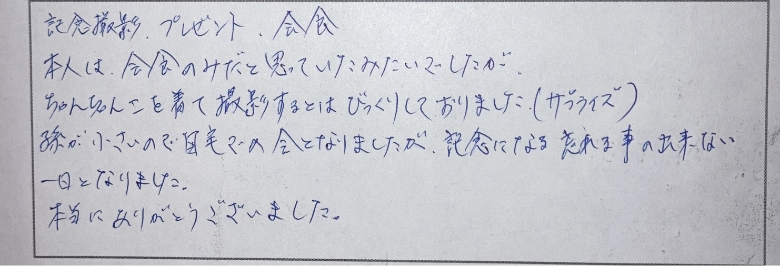 記念撮影、プレゼント、会食
本人は、会食のみだと思っていたみたいでしたが、
ちゃんちゃんこを着て撮影するとはびっくりしておりました。(サプライズ)
孫が小さいので自宅での会となりましたが、記念になる忘れる事の出来ない
一日となりました。
本当にありがとうございました。